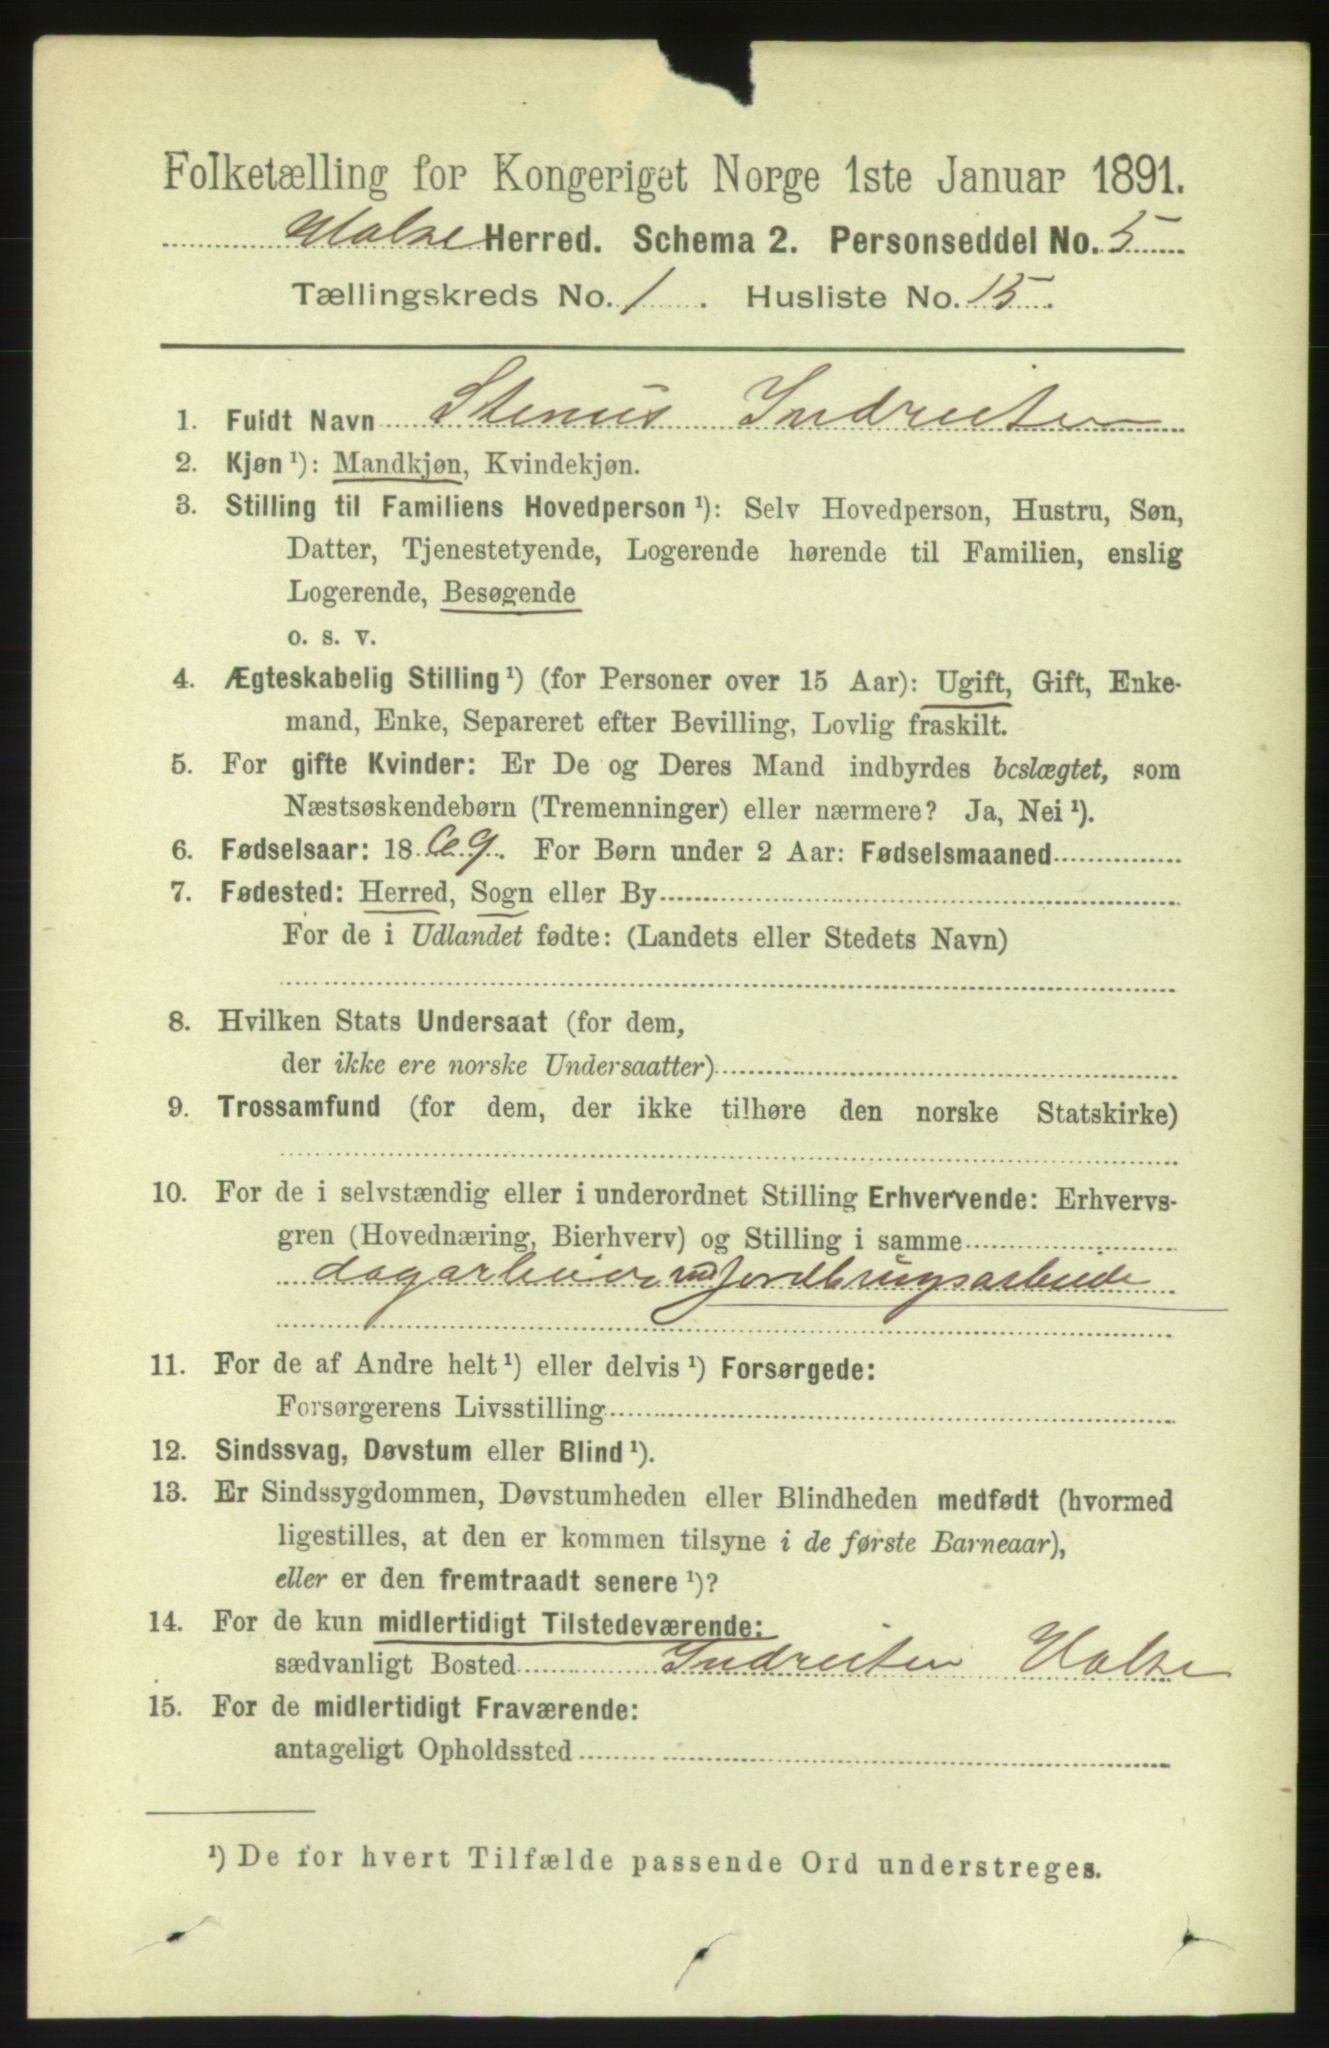 Folketælling for Kongeriget Norge 1ste Januar 1891.
Halse Herred. Schema 2. Personseddel No. 5
Tællingskreds No. 1. Husliste No. 15.
1. Fuldt Navn Stenus Indreiten
2. Kjøn ¹): Mandkjøn, Kvindekjøn.
3. Stilling til Familiens Hovedperson ¹): Selv Hovedperson, Hustru, Søn,
Datter, Tjenestetyende, Logerende hørende til Familien, enslig
Logerende, Besøgende
o. s. v.
4. Ægteskabelig Stilling ¹) (for Personer over 15 Aar): Ugift, Gift, Enke-
mand, Enke, Separeret efter Bevilling, Lovlig fraskilt.
5. For gifte Kvinder: Er De og Deres Mand indbyrdes beslægtet, som
Næstsøskendebørn (Tremenninger) eller nærmere? Ja, Nei ¹).
6. Fødselsaar: 18 69. For Børn under 2 Aar: Fødselsmaaned
7. Fødested: Herred, Sogn eller By
For de i Udlandet fødte: (Landets eller Stedets Navn)
8. Hvilken Stats Undersaat (for dem,
der ikke ere norske Undersaatter)
9. Trossamfund (for dem, der ikke tilhøre den norske Statskirke)
10. For de i selvstændig eller i underordnet Stilling Erhvervende: Erhvervs-
gren (Hovednæring, Bierhverv) og Stilling i samme
dagarbeider ved jordbrugsarbeide
11. For de af Andre helt ¹) eller delvis ¹) Forsørgede:
Forsørgerens Livsstilling
12. Sindssvag, Døvstum eller Blind ¹).
13. Er Sindssygdommen, Døvstumheden eller Blindheden medfødt (hvormed
ligestilles, at den er kommen tilsyne i de første Barneaar),
eller er den fremtraadt senere ¹)?
14. For de kun midlertidigt Tilstedeværende:
sædvanligt Bosted Indreiten Halse
15. For de midlertidigt Fraværende:
antageligt Opholdssted
¹) De for hvert Tilfælde passende Ord understreges.